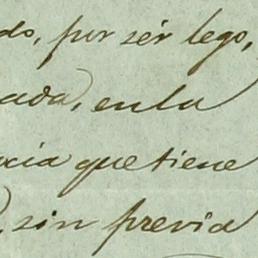 do, por sér lego,
ada, enla
cia que tiene
, sin previa